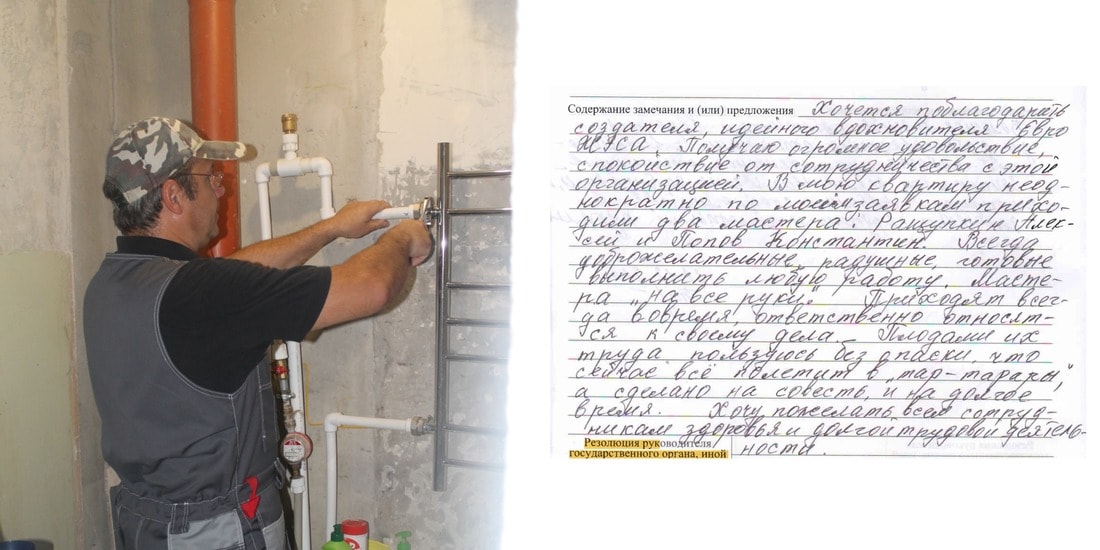 Содержание замечания и (или) предложения Хочется поблагодарить
создателя, идейного вдохновителя Евро
ЖЭСА. Получаю огромное удовольствие,
спокойствие от сотрудничества с этой
организацией. В мою квартиру неод-
нократно по моим заявкам прихо-
дили два мастера: Ращупкин Алек-
сей и Попов Константин. Всегда
доброжелательные, радушные, готовые
выполнить любую работу. Масте-
ра „на все руки." Приходят всег-
да вовремя, ответственно относят-
ся к своему дела. Плодами их
труда пользуюсь без опаски, что
сейчас всё полетит в „тар-тарары,"
а сделано на совесть, и на долгое
время. Хочу пожелать всем сотруд-
никам здоровья и долгой трудовой деятель-
ности.
Резолюция руководителя
государственного органа, иной